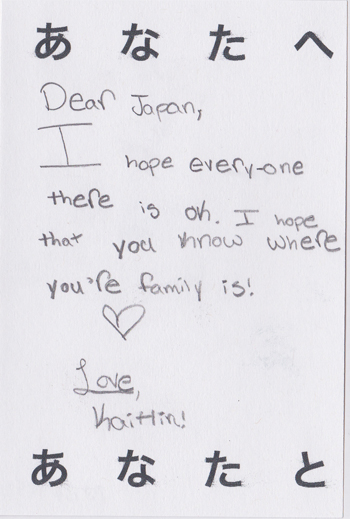 あなたへ
Dear Japan,
I hope every-one
there is oh. I hope
that you know where
you're family is!
Love,
Kaitlin!
あなたと